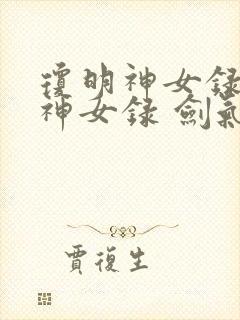 瓊明神女録
神女録 劍氣
賈復生